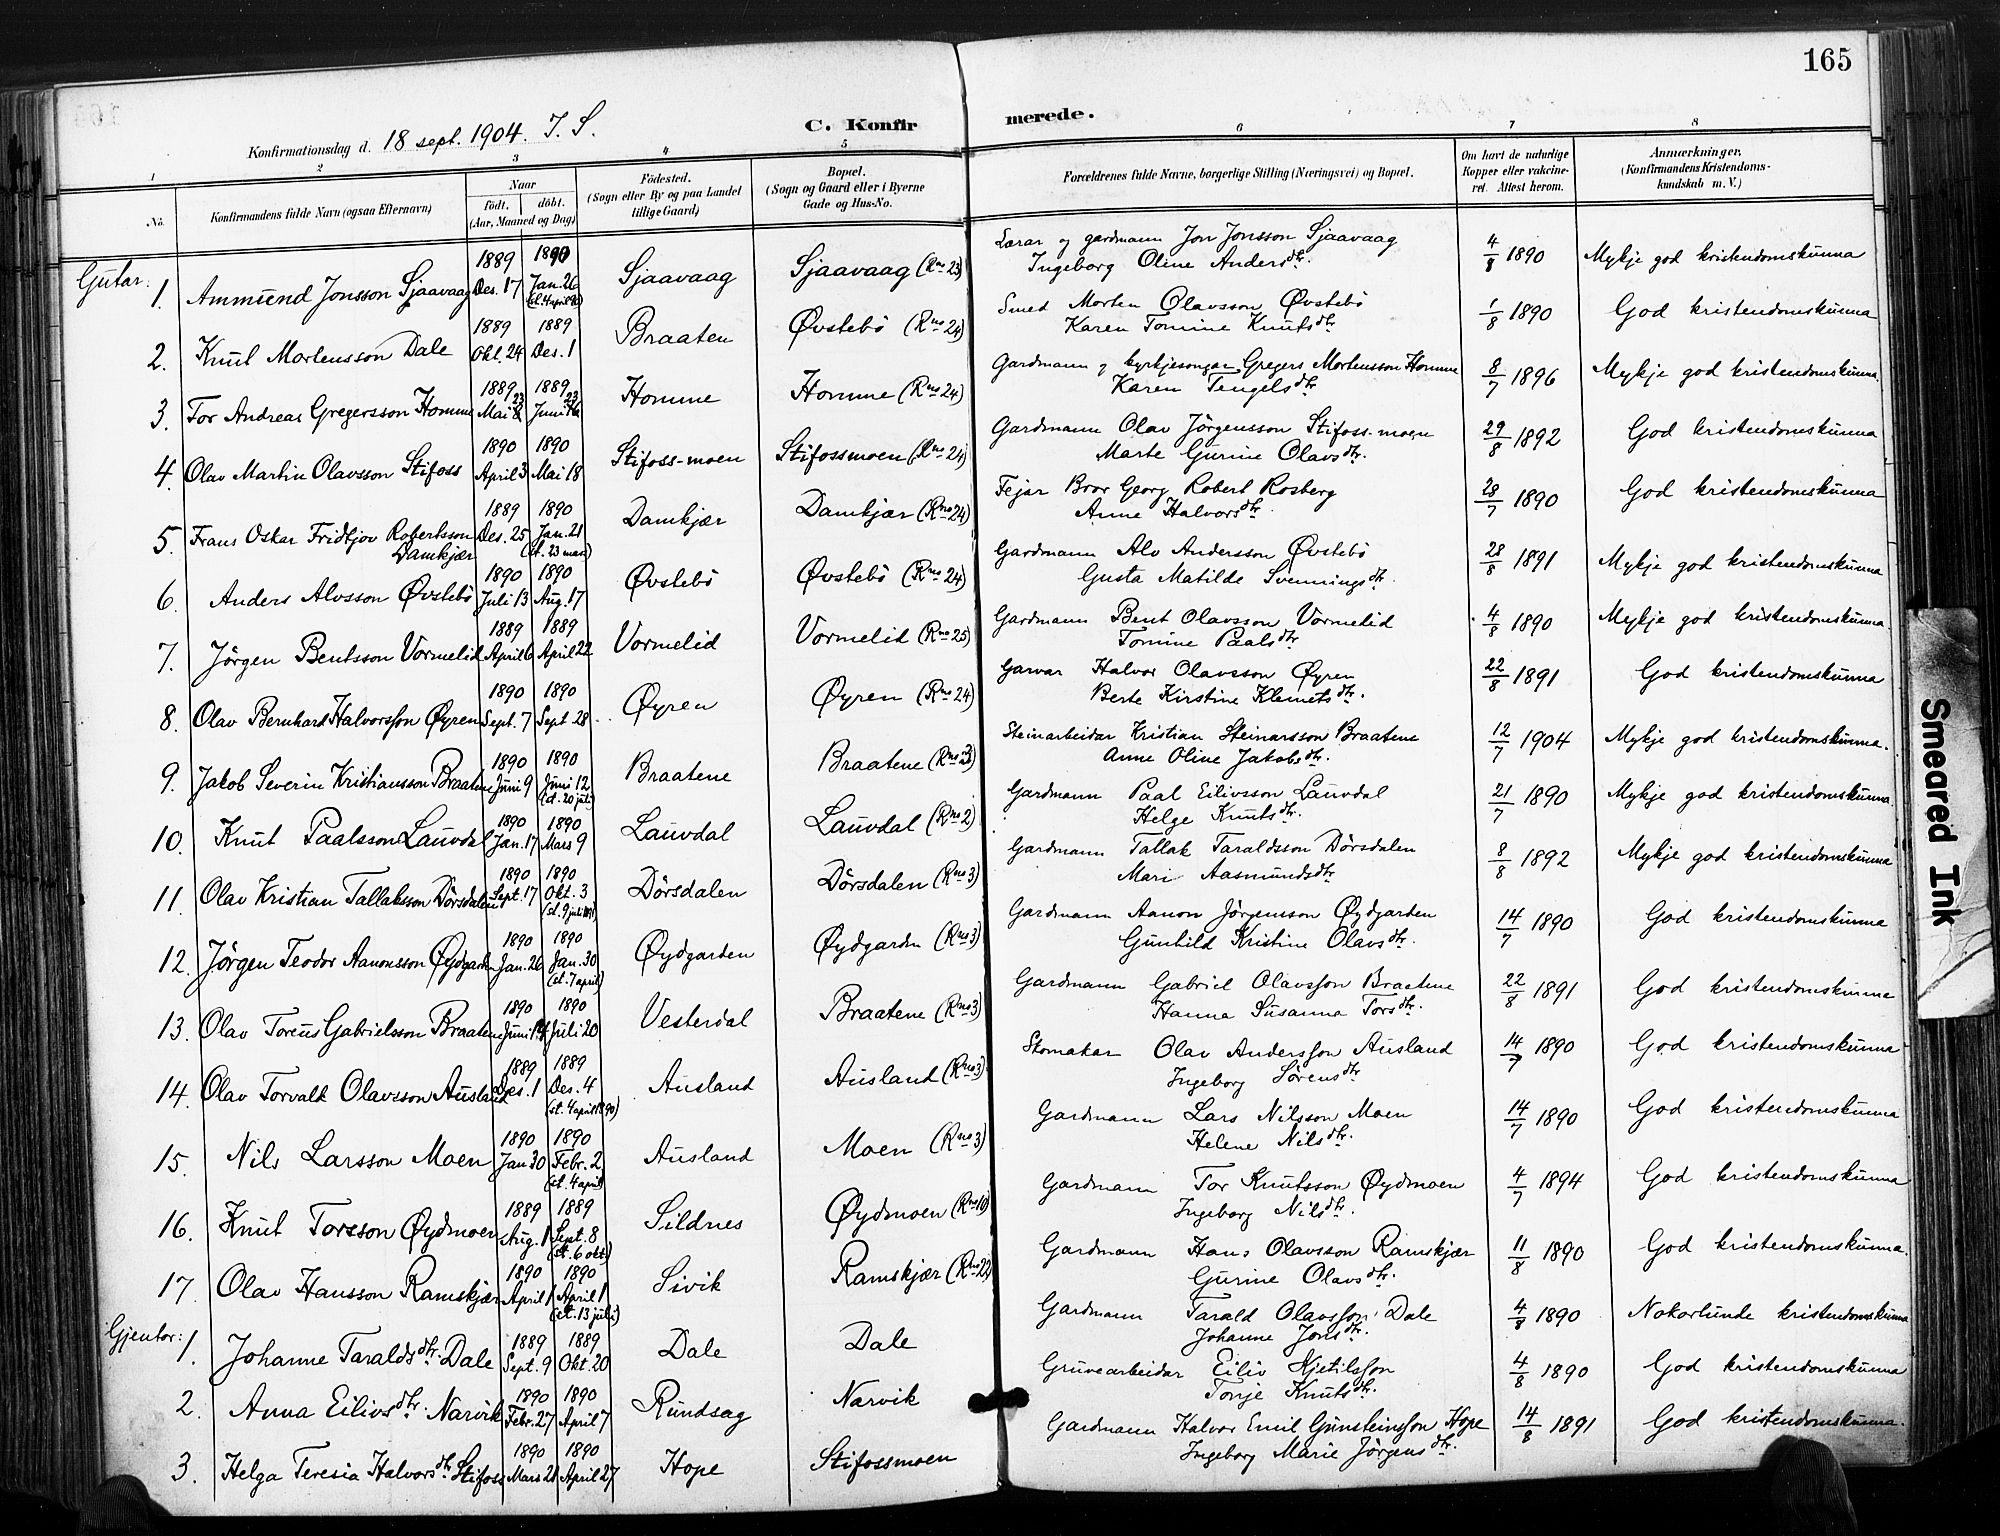 165
C. Konfirmerede.
Konfirmationsdag d. 18 sept. 1904. I. S.
1 2 3 4 5 6 7 8
No.
Konfirmandens fulde Navn (ogsaa Efternavn)
Naar
födt. döbt.
(Aar, Maaned og Dag)
Födested.
(Sogn eller By og paa Landet
tillige Gaard)
Bopæl.
(Sogn og Gaard eller i Byerne
Gade og Hus-No.
Forældrenes fulde Navne, borgerlige Stilling (Næringsvei) og Bopæl.
Om havt de naturlige
Kopper eller vakcine-
ret. Attest herom.
Anmærkninger.
(Konfirmandens Kristendoms-
kundskab m. V.)
Gutar:
1. Ammund Jonsson Sjaavaag 1889 Des. 17 1890 Jan. 26 (st. 4 april 90) Sjaavaag Sjaavaag (Rno 23) Lærar og gardmann Jon Jonsson Sjaavaag 4/8 1890 Mykje god kristendomskunna
Ingeborg Oline Andersdtr.
2. Knut Mortensson Dale 1889 Okt. 24 1889 Des. 1 Braaten Øvstebö (Rno 24) Smed Morten Olavsson Øvstebö 1/8 1890 God kristendomskunna
Karen Tomine Knutsdtr
3. Tor Andreas Gregersson Homme 1889 Mai 23 1889 Juni 23 Homme Homme (Rno 24) Gardmann og kyrkjesongar Gregers Mortensson Homme 8/7 1896 Mykje god kristendomskunna.
Karen Tengelsdtr
4. Olav Martin Olavsson Stifoss 1890 April 3 1890 Mai 18 Stifoss-moen Stifossmoen (Rno 24) Gardmann Olav Jörgensson Stifoss-moen 29/8 1892 God kristendomskunna
Marte Gurine Olavsdtr.
5. Frans Oskar Fridtjov Robertsson Damkjær 1889 Des. 25 1890 Jan. 21 (st. 23 mars) Damkjær Damkjær (Rno 24) Fejar Bror Georg Robert Rosberg 28/7 1890 God kristendomskunna
Anne Halvorsdtr
6. Anders Alvsson Øvstebö 1890 Juli 13 1890 Aug. 17 Øvstebö Øvstebö (Rno 24) Gardmann Alv Andersson Øvstebö 28/8 1891 Mykje god kristendomskunna
Gusta Matilde Svenningsdtr.
7. Jörgen Bentsson Vormelid 1889 April 6 1889 April 22 Vormelid Vormelid (Rno 25) Gardmann Bent Olavsson Vormelid 4/8 1890 Mykje god kristendomskunna.
Tomine Paalsdtr
8. Olav Bernhard Halvorsson Øyren 1890 Sept. 7 1890 Sept 28 Øyren Øyren (Rno 24) Garvar Halvor Olavsson Øyren 22/8 1891 God kristendomskunna
Berte Kirstine Klemetsdtr.
9. Jakob Severin Kristiansson Braatene 1890 Juni 9 1890 Juni 12 (st. 20 juli) Braatene Braatene (Rno 3) Steinarbeidar Kristian Steinarsson Braatene 12/7 1904 Mykje god kristendomskunna.
Anne Oline Jakobsdtr.
10. Knut Paalsson Lauvdal 1890 Jan. 17 1890 Mars 9 Lauvdal Lauvdal (Rno 2) Gardmann Paal Eilivsson Lauvdal 21/7 1890 Mykje god kristendomskunna.
Helge Knutsdtr.
11. Olav Kristian Tallaksson Dörsdalen 1890 Sept. 17 1890 Okt. 3 (st. 9 juli 1891) Dörsdalen Dörsdalen (Rno 3) Gardmann Tallak Taraldsson Dörsdalen 8/8 1892 Mykje god kristendomskunna
Mari Aasmundsdtr
12. Jörgen Teodor Aanonsson Øydgarden 1890 Jan. 26 1890 Jan. 30 (st. 7 april) Øydgarten Øydgardn (Rno 3) Gardmann Aanon Jörgensson Øydgarden 14/7 1890 God kristendomskunna
Gunhild Kristine Olavsdtr.
13. Olav Toreus Gabrielsson Braatene 1890 Juni 14 1890 Juli 20 Vesterdal Braatene (Rno 3) Gardmann Gabriel Olavsson Braatene 22/8 1891 God kristendomskunna
Hanna Susanna Torsdtr.
14. Olav Torvald Olavsson Ausland 1889 Des. 1 1889 Des. 4 (st. 4 april 1890) Ausland Ausland (Rno 3) Skomakar Olav Andersson Ausland 14/7 1890 God kristendomskunna
Ingeborg Sörensdtr
15. Nils Larsson Moen 1890 Jan 30 1890 Febr. 2 (st. 4 april) Ausland Moen (Rno 3) Gardmann Lars Nilsson Moen 14/7 1890 God kristendomskunna
Helene Nilsdtr.
16. Knut Torsson Øydmoen 1889 Aug. 1 1889 Sept. 8 (st. 6 okt) Sildnes Øydmoen (Rno 10) Gardmann Tor Knutsson Øydmoen 4/7 1894 God kristendomskunna
Ingeborg Nilsdtr.
17. Olav Hansson Ramskjær 1890 April 1 1890 April 1 (st. 13 juli) Sivik Ramskjær (Rno 22) Gardmann Hans Olavsson Ramskjær 11/8 1890 God kristendomskunna.
Gurine Olavsdtr.
Gjentor:
1. Johanne Taraldsdtr. Dale 1889 Sept. 9 1889 Okt. 20 Dale Dale Gardmann Tarald Olavsson Dale 4/8 1890 Nokorlunde kristendomskunna
Johanne Jonsdtr.
2. Anna Eilivsdtr. Narvik 1890 Febr. 27 1890 April 7 Rundsag Narvik Gruvearbeidar Eiliv Kjetilsson 4/8 1890 God kristendomskunna
Tonje Knutsdtr.
3. Helga Teresia Halvorsdtr Stifoss 1890 Mars 21 1890 April 27 Hope Stifossmoen Gardmann Halvor Emil Gunsteinsson Hope 14/8 1891 God kristendomskunna.
Ingeborg Marie Jörgensdtr.
Smeared Ink